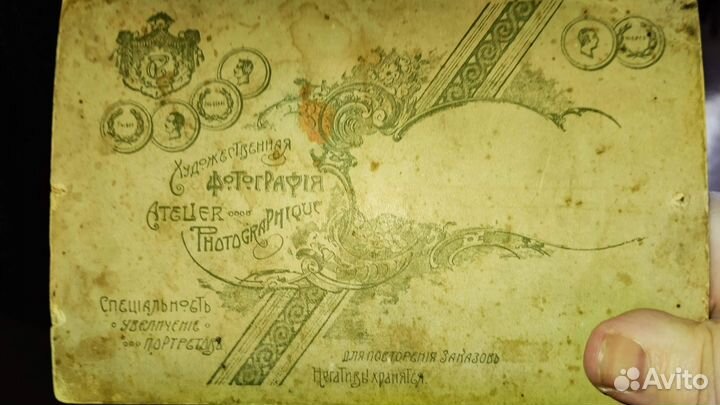 Художественная
Фотографія
Atelier
Photographique
Спеціальность
увеличеніе
портретовъ
для повторенія заказовъ
Негативы хранятся.
Avito